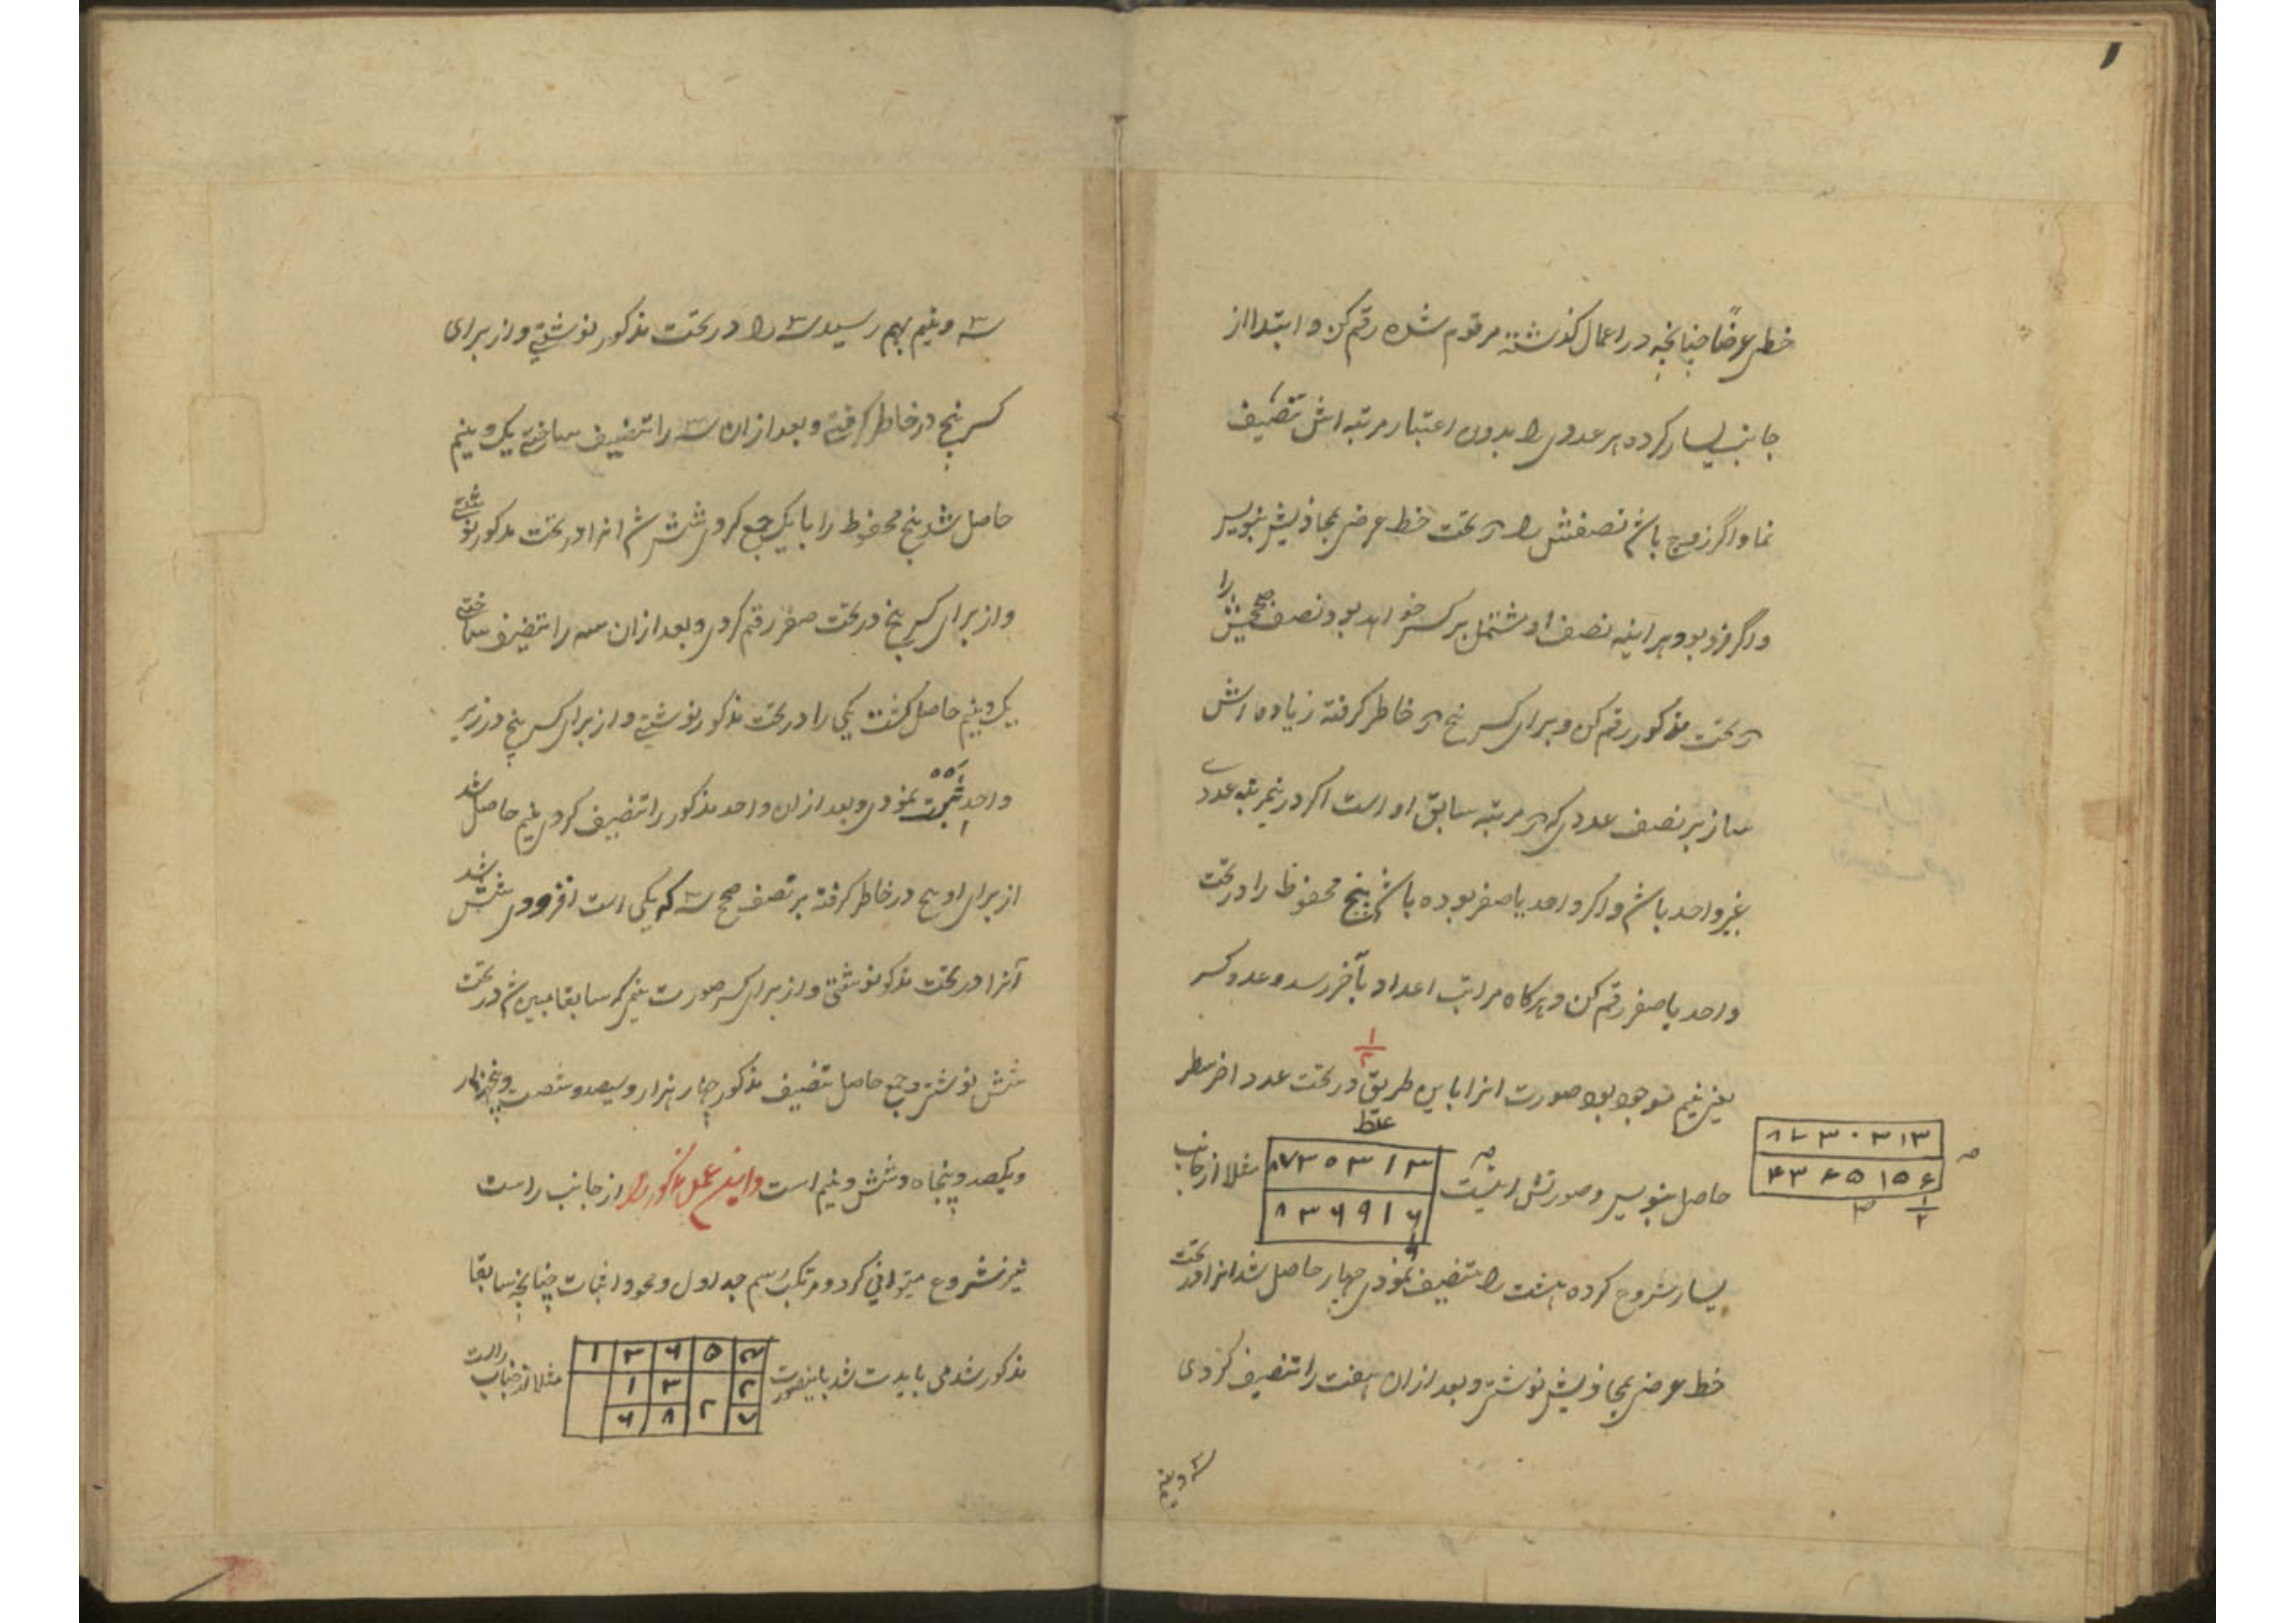 خط عرضاً چنانچه در اعمال گذشته مرقوم شده رقم کن و ابتدا از
جانب یسار کرده هر عددی را بدون اعتبار مرتبه اش تنصیف
نما و اگر زوج باشد نصفش را در تحت خط عرضی بمحاذیش بنویس
و اگر فرد بود هر اینه نصف او مشتمل بر کسر خواهد بود نصف صحیحش را
در تحت مذکور رقم کن و برای کسر پنج در خاطر گرفته زیاده اش
ساز بر نصف عددی که در مرتبه سابق او است اگر در نمرتبه عددے
غیر واحد باشد و اگر واحد یا صفر بوده باشد پنج محفوظ را در تحت
واحد یا صفر رقم کن و هرگاه مراتب اعداد بآخر رسد و عدد کسر
۱
۲
یعنی نیم موجود بود صورت انرا باین طریق در تحت عدد اخر سطر
غلط
حاصل بنویس و صورتش اینست مثلا از جانب
۸۷۳۰۳۱۳
۸۳۶۹۱۶
صه
۸۷۳۰۳۱۳
۴۳۶۵۱۵۶
۱
۲
یسار شروع کرده هشت را تنصیف نمودی چهار حاصل شد انرا در تحت
خط عرضی بمحاذیش نوشتی و بعد از ان هفت را تنصیف کردی
سه و نیم
سه و نیم بهم رسید سه را در تحت مذکور نوشتی و از برای
کسر پنج در خاطر گرفتی و بعد از ان سه را تنصیف ساختی یک و نیم
حاصل شد پنج محفوظ را با یک جمع کردی شش شد انرا در تحت مذکور نوشتی
و از برای کسر پنج در تحت صفر رقم کردی و بعد از ان سه را تنصیف ساختی
یک و نیم حاصل گشت یکی را در تحت مذکور نوشتی و از برای کسر پنج در زیر
واحد ثبت نمودی و بعد از ان واحد مذکور را تنصیف کردی نیم حاصل شد
از برای او پنج در خاطر گرفته بر نصف صحیح سه که یکی است افزودی شش شد
آنرا در تحت مذکور نوشتی و از برای کسر صورت نیم که سابقا مبین شد در تحت
شش نوشتی و جمع حاصل تنصیف مذکور چهار هزار و سیصد و شصت و پنجهزار
و یکصد و پنجاه و شش و نیم است و این عمل مذکور را از جانب راست
نیز شروع میتوانی کرد و مرتکب رسم جداول و محو و اثبات چنانچه سابقا
مذکور شد می باید شد باینصورت مثلا از جانب راست
۱ ۳ ۶ ۵
۱ ۳ ۲
۶ ۸ ۲ ۷